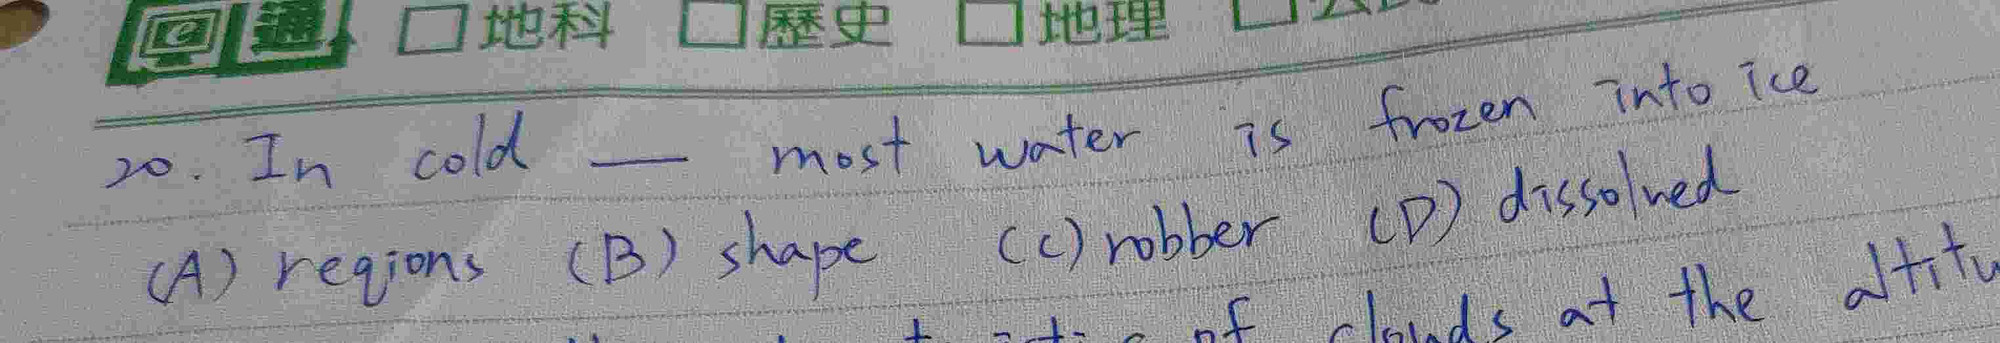 通 □地科 □歷史 □地理
20. In cold — most water is frozen into ice
(A) regions (B) shape (C) robber (D) dissolved
of clouds at the